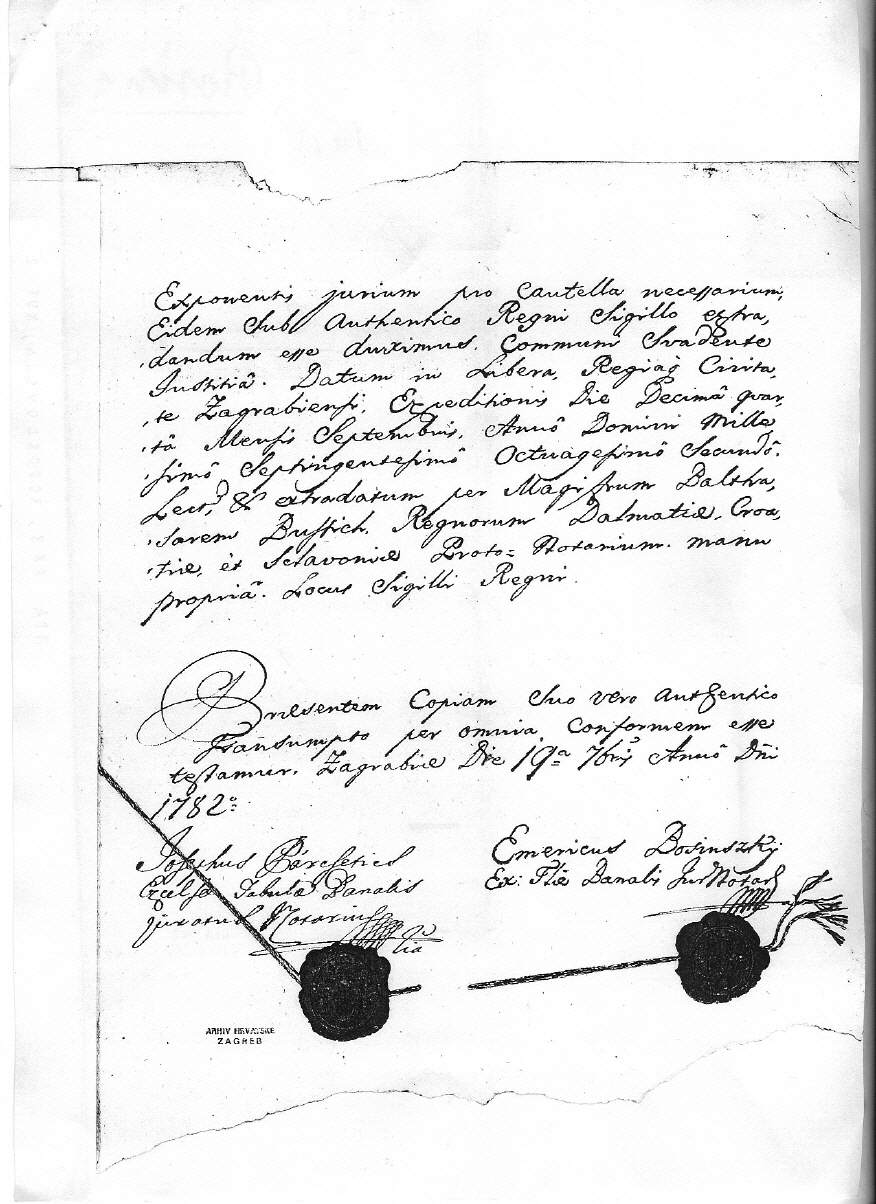 Exponentis jurium pro Cautella necessarium,
Eidem Sub Authentico Regni Sigillo extra,
,dandum esse duximus. Communi Svadente
Justitiâ. Datum in Libera, Regiaq̀ Civita,
,te Zagrabiensi, Expeditionis Die Decimâ quar,
,tâ Mensis Septembris, Annô Domini Mille
,simô Septingentesimô Octuagesimô Secundô.
Lect, & extradatum per Magistrum Baltha,
,sarem Bustich, Regnorum Dalmatiæ, Croa,
,tiæ, et Sclavoniæ Proto=Notarium. manu
propriâ. Locus Sigilli Regni.
Præsentem Copiam Suo vero Authentico
Transumpto per omnia Conformem esse
testamur. Zagrabiæ Die 19a 7bris Annô Dni
1782o
Josephus
Excelsæ Tabulæ Banalis
Juratus Notarius
Emericus
Ex: Tlæ Banalis Jur Notar
ARHIV HRVATSKE
ZAGREB